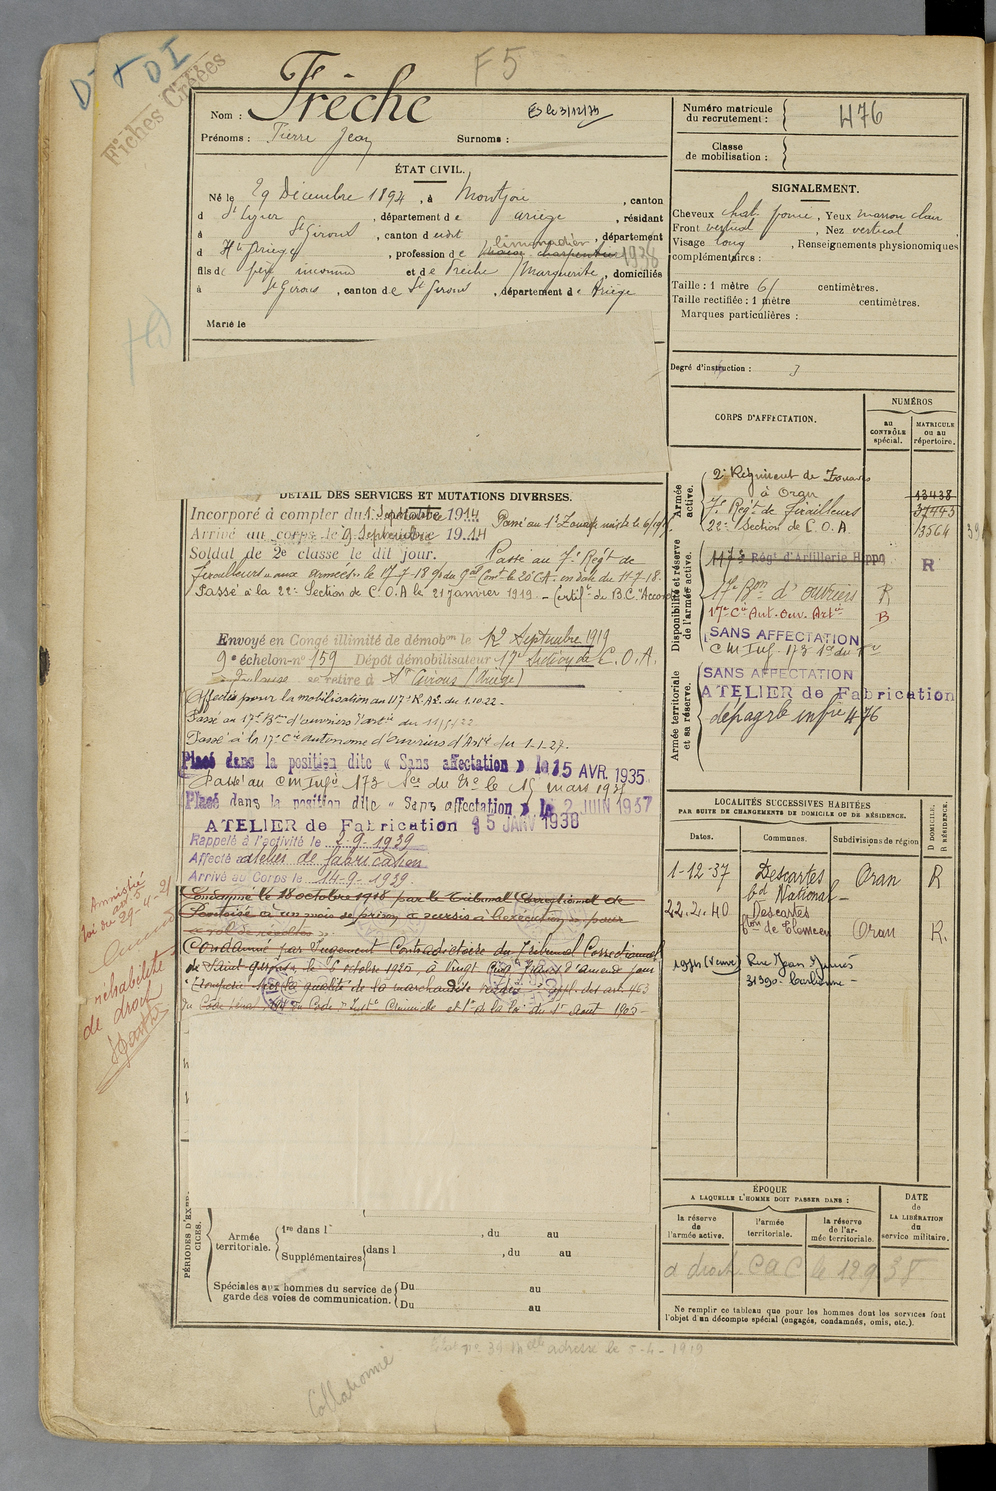 D- + DI
Fiches Créées
F5
Nom : Frèche
Es le 3/12/73
Prénoms : Pierre Jean Surnoms :
ÉTAT CIVIL.
Né le 29 Décembre 1894, à Montjoie, canton
d St Lizier, département de Ariège, résidant
à St Girons, canton d eudit, département
d Hte Ariège, profession de limonadier 1938
fils de père inconnu et de Frèche Marguerite, domiciliés
à St Girons, canton de St Girons, département de Ariège
Marié le
DÉTAIL DES SERVICES ET MUTATIONS DIVERSES.
Incorporé à compter du 1 Septembre 1914 Passé au 1er Zouaves
Arrivé au corps le 9 Septembre 1914
Soldat de 2e classe le dit jour. Passé au 7e Régt de
Tirailleurs aux armées le 17-7-18 en date du 11-7-18.
Passé à la 22e Section de C.O.A le 21 janvier 1919 - Certift de B.C. "Accordé"
Envoyé en Congé illimité de démobon le 12 Septembre 1919
9e échelon-n° 159 Dépôt démobilisateur 17e Section de C.O.A.
Toulouse se retire à St Girons (Ariège)
Affecté pour la mobilisation au 117e R.A.L. du 1.10.22
Passé au 17e Bon d'ouvriers d'artie du 11/5/22
Passé à la 17e Cie autonome d'ouvriers d'Artie du 1-1-27.
Placé dans la position dite « Sans affectation » le 15 AVR. 1935
Passé au CM Infie 173 le 15 mars 1937
Placé dans la position dite « Sans affectation » le 2 JUIN 1937
ATELIER de Fabrication 5 JANV 1938
Rappelé à l'activité le 2-9-1939
Affecté atelier de fabrication
Arrivé au Corps le 14-9-1939
Condamné le 18 octobre 1918 par le Tribunal Correctionnel de
Pontoise à un mois de prison à sursis à l'exécution pour
Condamné par Jugement Contradictoire du Tribunal Correctionnel
de Saint Girons, le 6 octobre 1925, à Vingt Cinq Francs d'amende pour
tromperie sur la qualité de la marchandise vendue appl. des art. 463
du Code Pénal 194 du Code d'Instn Criminelle et 1er de la loi du 1er Août 1905 -
Amnistié
art 5
loi du 29-4-21
réhabilité
de droit
PÉRIODES D'EXERCICES.
Armée territoriale.
1re dans l , du au
Supplémentaires dans l , du au
Spéciales aux hommes du service de garde des voies de communication.
Du au
Du au
adresse le 5-4-1919
Collationné
Numéro matricule du recrutement : 476
Classe de mobilisation :
SIGNALEMENT.
Cheveux chat. foncé, Yeux marron clair
Front vertical, Nez vertical
Visage long, Renseignements physionomiques
complémentaires :
Taille : 1 mètre 61 centimètres.
Taille rectifiée : 1 mètre centimètres.
Marques particulières :
Degré d'instruction : 3
CORPS D'AFFECTATION.
NUMÉROS
au CONTRÔLE spécial.
MATRICULE ou au répertoire.
Armée active.
2e Régiment de Zouaves
à Oran 13438
7e Régt de Tirailleurs 37745
22e Section de C.O.A 13564
Disponibilité et réserve de l'armée active.
117e Régt d'Artillerie Hippo R
17e Bon d'ouvriers R
17e Cie Aut. Ouv. Artie B
SANS AFFECTATION
CM Inf. 173
Armée territoriale et sa réserve.
SANS AFFECTATION
ATELIER de Fabrication
476
LOCALITÉS SUCCESSIVES HABITÉES
PAR SUITE DE CHANGEMENTS DE DOMICILE OU DE RÉSIDENCE.
Dates. Communes. Subdivisions de région D DOMICILE. R RÉSIDENCE.
1-12-37 Descartes Bd National - Oran R
22.2.40 Descartes de Tlemcen Oran R.
1974 (Veuve) Rue Jean Jaurès
31390 - Carbonne -
ÉPOQUE
A LAQUELLE L'HOMME DOIT PASSER DANS :
la réserve de l'armée active.
l'armée territoriale.
la réserve de l'armée territoriale.
DATE de LA LIBÉRATION du service militaire.
a droit CAC le 12 9 38
Ne remplir ce tableau que pour les hommes dont les services font
l'objet d'un décompte spécial (engagés, condamnés, omis, etc.).